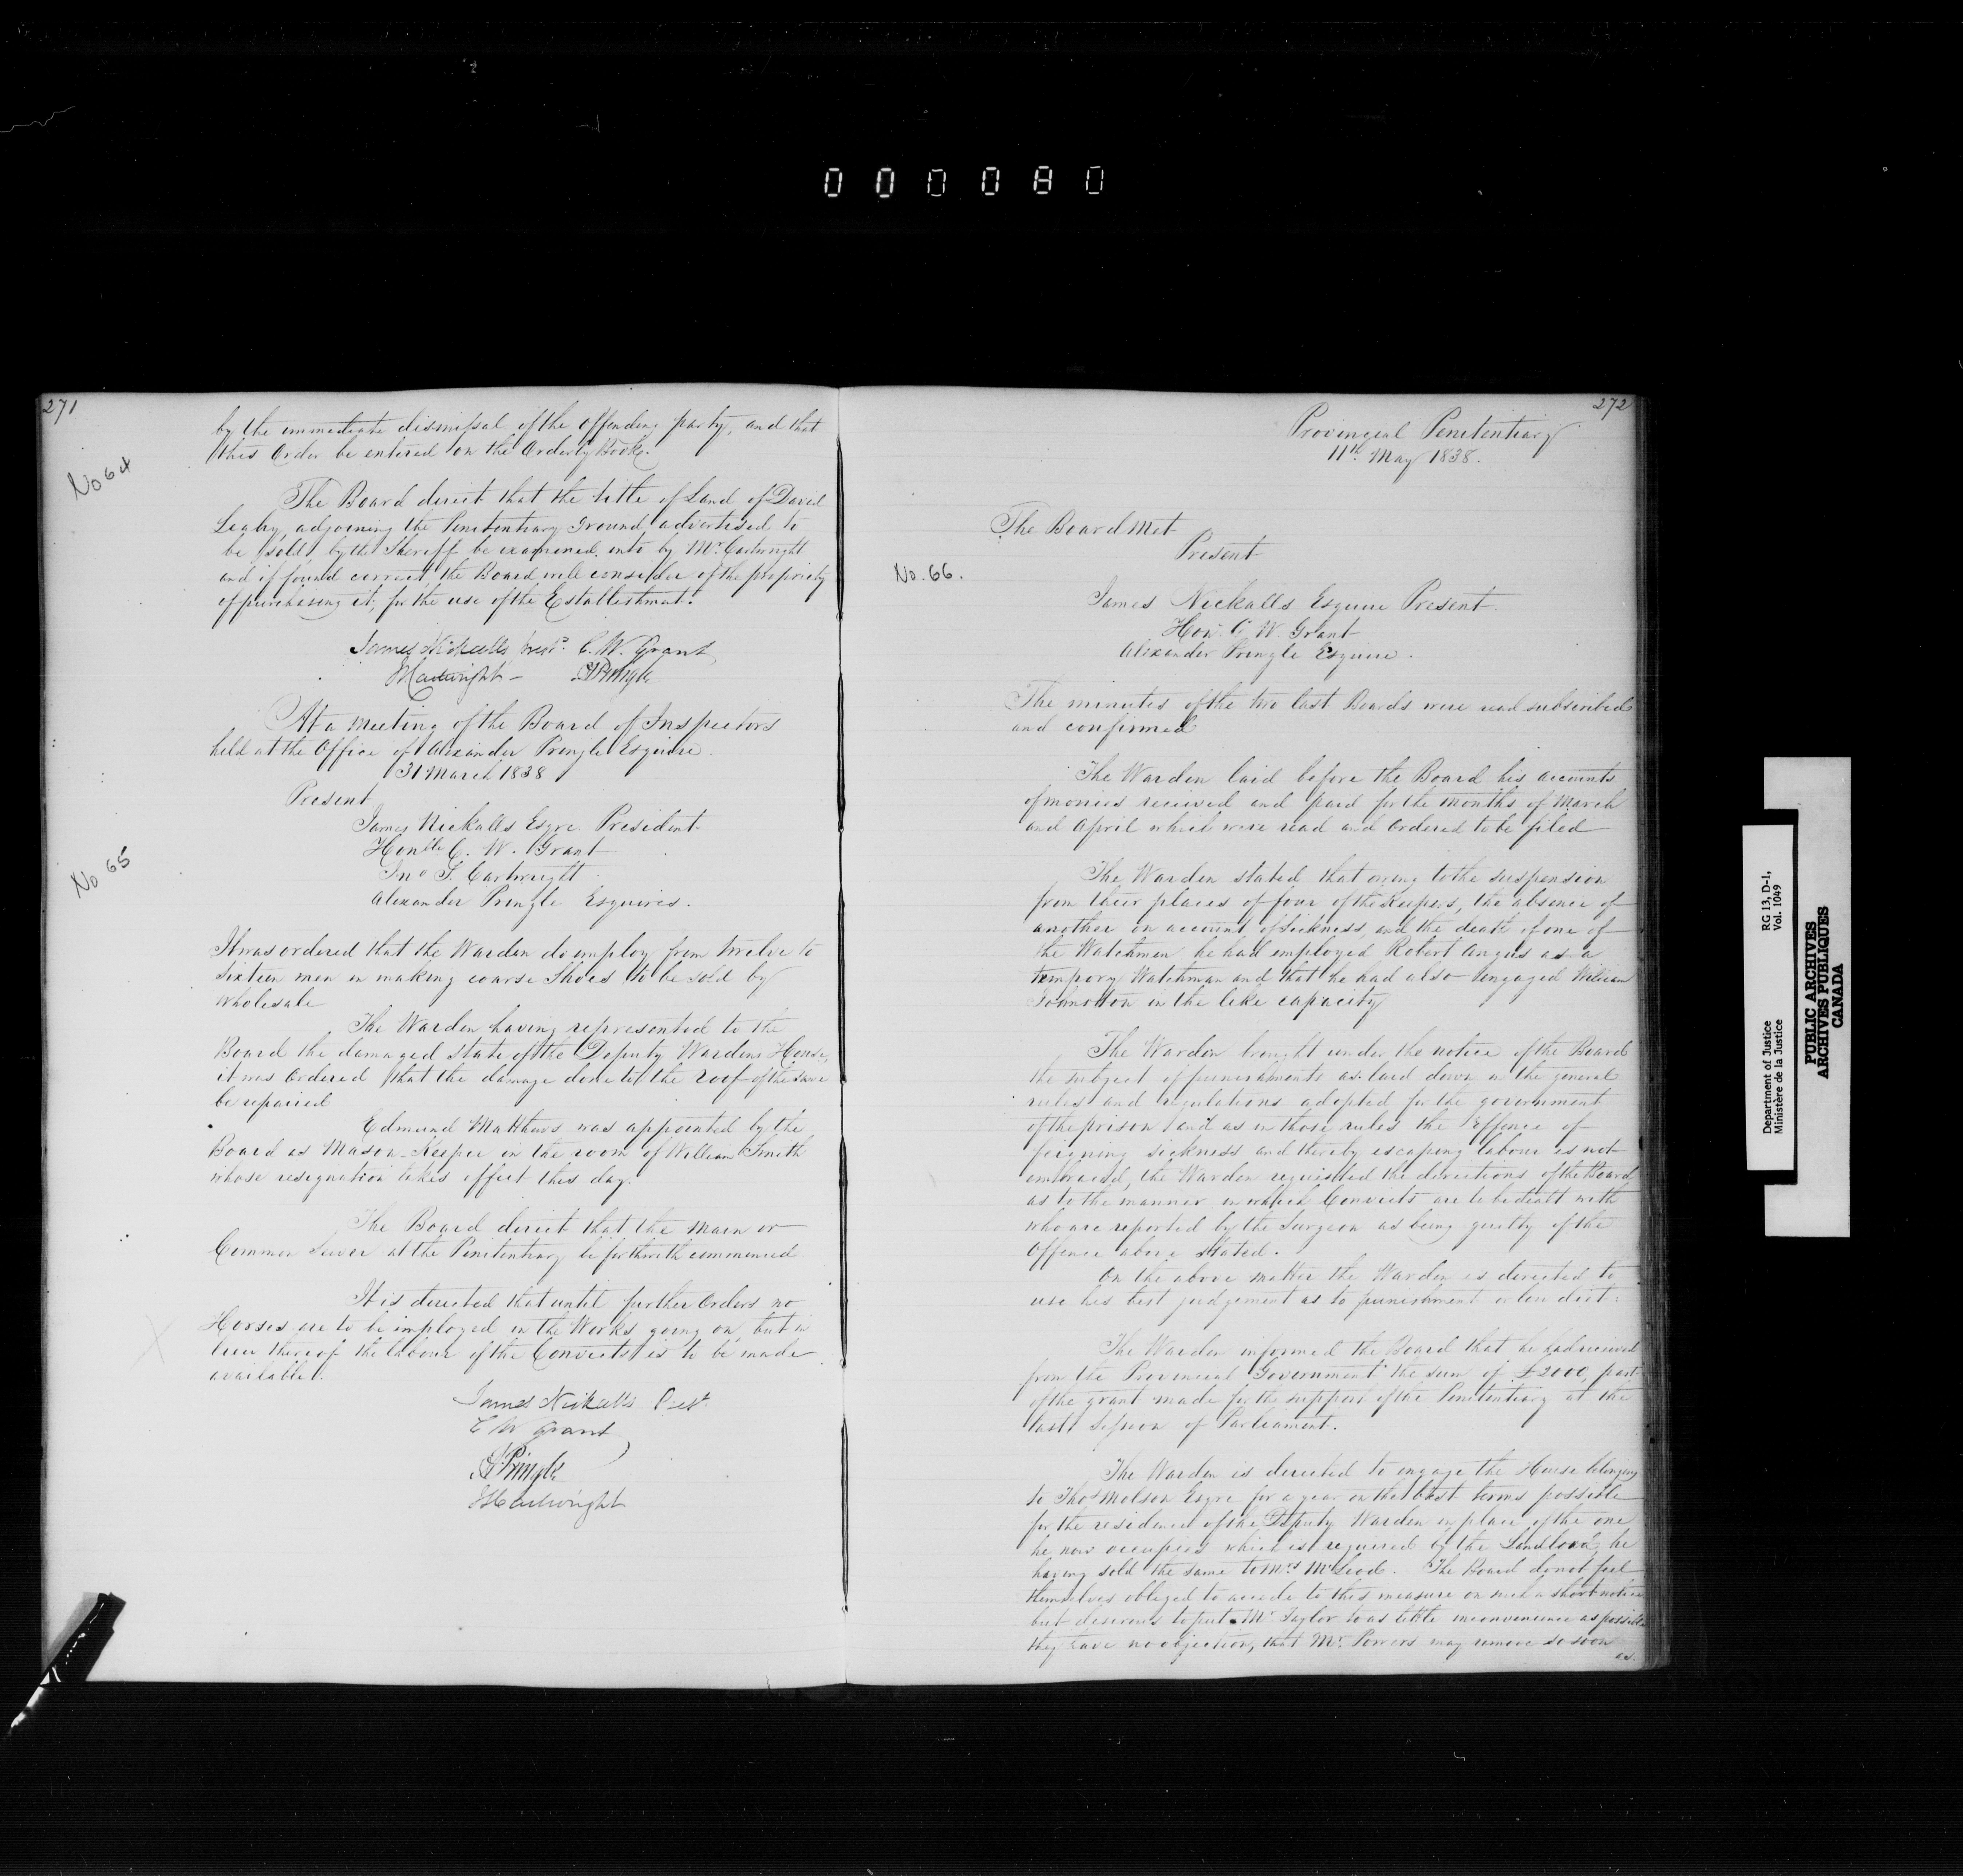 000080
271
by the immediate dismissal of the offending party, and that
this Order be entered on the Orderly Book.
No 64
The Board direct that the title of Land of David
Leahy, adjoining the Penitentiary Ground advertised to
be sold by the Sheriff be examined into by Mr. Cartwright
and if found correct, the Board will consider of the propriety
of purchasing it, for the use of the Establishment.
James Nickalls Prest. C. W. Grant
JSCartwright - APringle
At a meeting of the Board of Inspectors
held at the Office of Alexander Pringle Esquire
31 March 1838
Present
James Nickalls Esqre. President
Honble C. W. Grant
No 65
Jno S. Cartwright
Alexander Pringle Esquires.
It was ordered that the Warden do employ from twelve to
Sixteen men in making coarse Shoes to be sold by
wholesale
The Warden having represented to the
Board the damaged state of the Deputy Wardens House,
it was Ordered that the damage done to the roof of the same
be repaired
Edmund Matthews was appointed by the
Board as Mason-Keeper in the room of William Smith
whose resignation takes effect this day.
The Board direct that the main or
Common Sewer at the Penitentiary be forthwith commenced
It is directed that until further Orders no
Horses are to be employed in the Works going on, but in
lieu thereof the labour of the Convicts is to be made
available.
James Nickalls Prest.
C W Grant
APringle
JSCartwright
272
Provincial Penitentiary
11th May 1838.
The Board Met
Present
No. 66.
James Nickalls Esquire Present
Hon. C W. Grant
Alexander Pringle Esquire.
The minutes of the two last Boards were read subscribed
and confirmed
The Warden laid before the Board his accounts
of monies received and paid for the months of March
and April which were read and Ordered to be filed
The Warden stated that owing to the suspension
from their places of four of the Keepers, the absence of
another on account of Sickness, and the death of one of
the Watchmen he had employed Robert Angus as a
tempory Watchman and that he had also engaged William
Johnston in the like capacity
The Warden brought under the notice of the Board
the subject of punishments as laid down in the general
rules and regulations adopted for the government
of the prison and as in those rules the Offence of
feigning sickness and thereby escaping labour is not
embraced, the Warden requested the directions of the Board
as to the manner in which Convicts are to be dealt with
who are reported by the Surgeon as being guilty of the
Offence above stated.
On the above matter the Warden is directed to
use his best judgement as to punishment or low diet.
The Warden informed the Board that he had received
from the Provincial Government the sum of £2000, part
of the grant made for the support of the Penitentiary at the
last Session of Parliament.
The Warden is directed to engage the House belonging
to Thos Molson Esqre for a year on the best terms possible
for the residence of the Deputy Warden in place of the one
he now occupies which is required by the Landlord, he
having sold the same to Mrs McLeod. The Board do not feel
themselves obliged to accede to this measure on such a short notice
but desirous to put Mr Taylor to as little inconvenience as possible
they have no objection, that Mr. Powers may remove so soon
as.
Department of Justice
Ministère de la Justice
RG 13, D-1,
Vol. 1049
PUBLIC ARCHIVES
ARCHIVES PUBLIQUES
CANADA